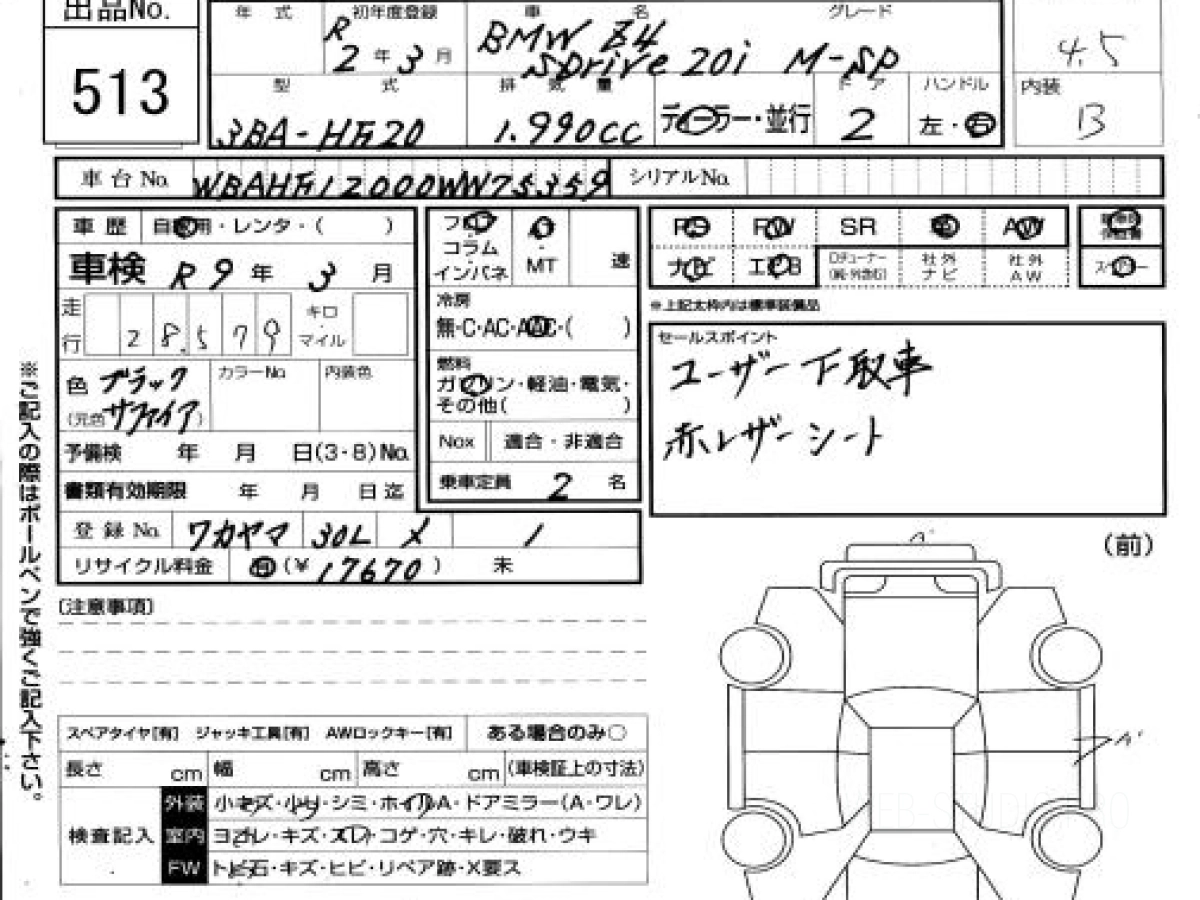 出品No.
513
年 式
初年度登録
R
2 年 3 月
車 名
BMW Z4
sDrive 20i M-SP
グレード
4.5
型 式
3BA-HF20
排 気 量
1.990cc
ディーラー・並行
ドア
2
ハンドル
左・右
内装
B
車台No.
WBAHF12000WW75359
シリアルNo.
車歴 自家用・レンタ・( )
車検 R9 年 3 月
走行 28,579 キロ・マイル
色 ブラック
(元色 サファイア)
カラーNo. 内装色
予備検 年 月 日(3・8)No.
書類有効期限 年 月 日迄
登録No. ワカヤマ 30L メ 1
リサイクル料金 有(¥17670) 未
フロア
コラム
インパネ
AT・MT 速
冷房
無・C・AC・AAC・( )
燃料
ガソリン・軽油・電気・
その他( )
Nox 適合・非適合
乗車定員 2 名
PS PW SR 革 AW
ナビ エアB
Dチューナー
(純・外含む)
社外
ナビ
社外
AW
新車時
保証書
スペアキー
※上記太枠内は標準装備品
セールスポイント
ユーザー下取車
赤レザーシート
※ご記入の際はボールペンで強くご記入下さい。
[注意事項]
スペアタイヤ[有] ジャッキ工具[有] AWロックキー[有] ある場合のみ○
長さ cm 幅 cm 高さ cm (車検証上の寸法)
検査記入
外装 小キズ・小凹・シミ・ホイルA・ドアミラー(A・ワレ)
室内 ヨゴレ・キズ・スレ・コゲ・穴・キレ・破れ・ウキ
FW トビ石・キズ・ヒビ・リペア跡・X要ス
(前)